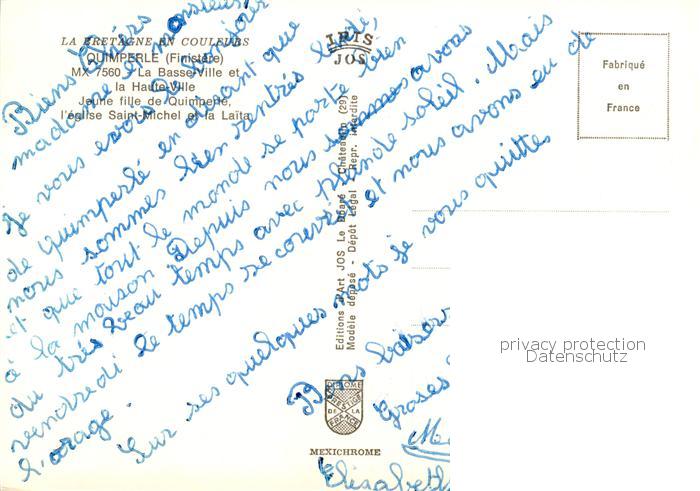 LA BRETAGNE EN COULEURS
QUIMPERLE (Finistère)
MX 7560 - La Basse-Ville et
la Haute-Ville
Jeune fille de Quimperlé,
l'église Saint-Michel et la Laïta
IRIS
JOS
Fabriqué
en
France
Editions d'Art JOS Le Doaré - Châteaulin (29)
Modèle déposé - Dépôt Légal - Repr. interdite
DIPLOME
PRESTIGE
DE LA
FRANCE
MEXICHROME
Biens Chers monsieur
madame et
Je vous evois Le bonjour
de Quimperlé en disant que
nous sommes bien rentrés lundi,
et que tout le monde se porte bien
à la maison Depuis nous avous
du très beau temps avec plainde soleil. Mais
vendredi le temps se couvrir et nous avons eu de
l'orage.
Sur ses quelques mots je vous quittes
Bons baisers
Groses
Elisabeth
privacy protection
Datenschutz